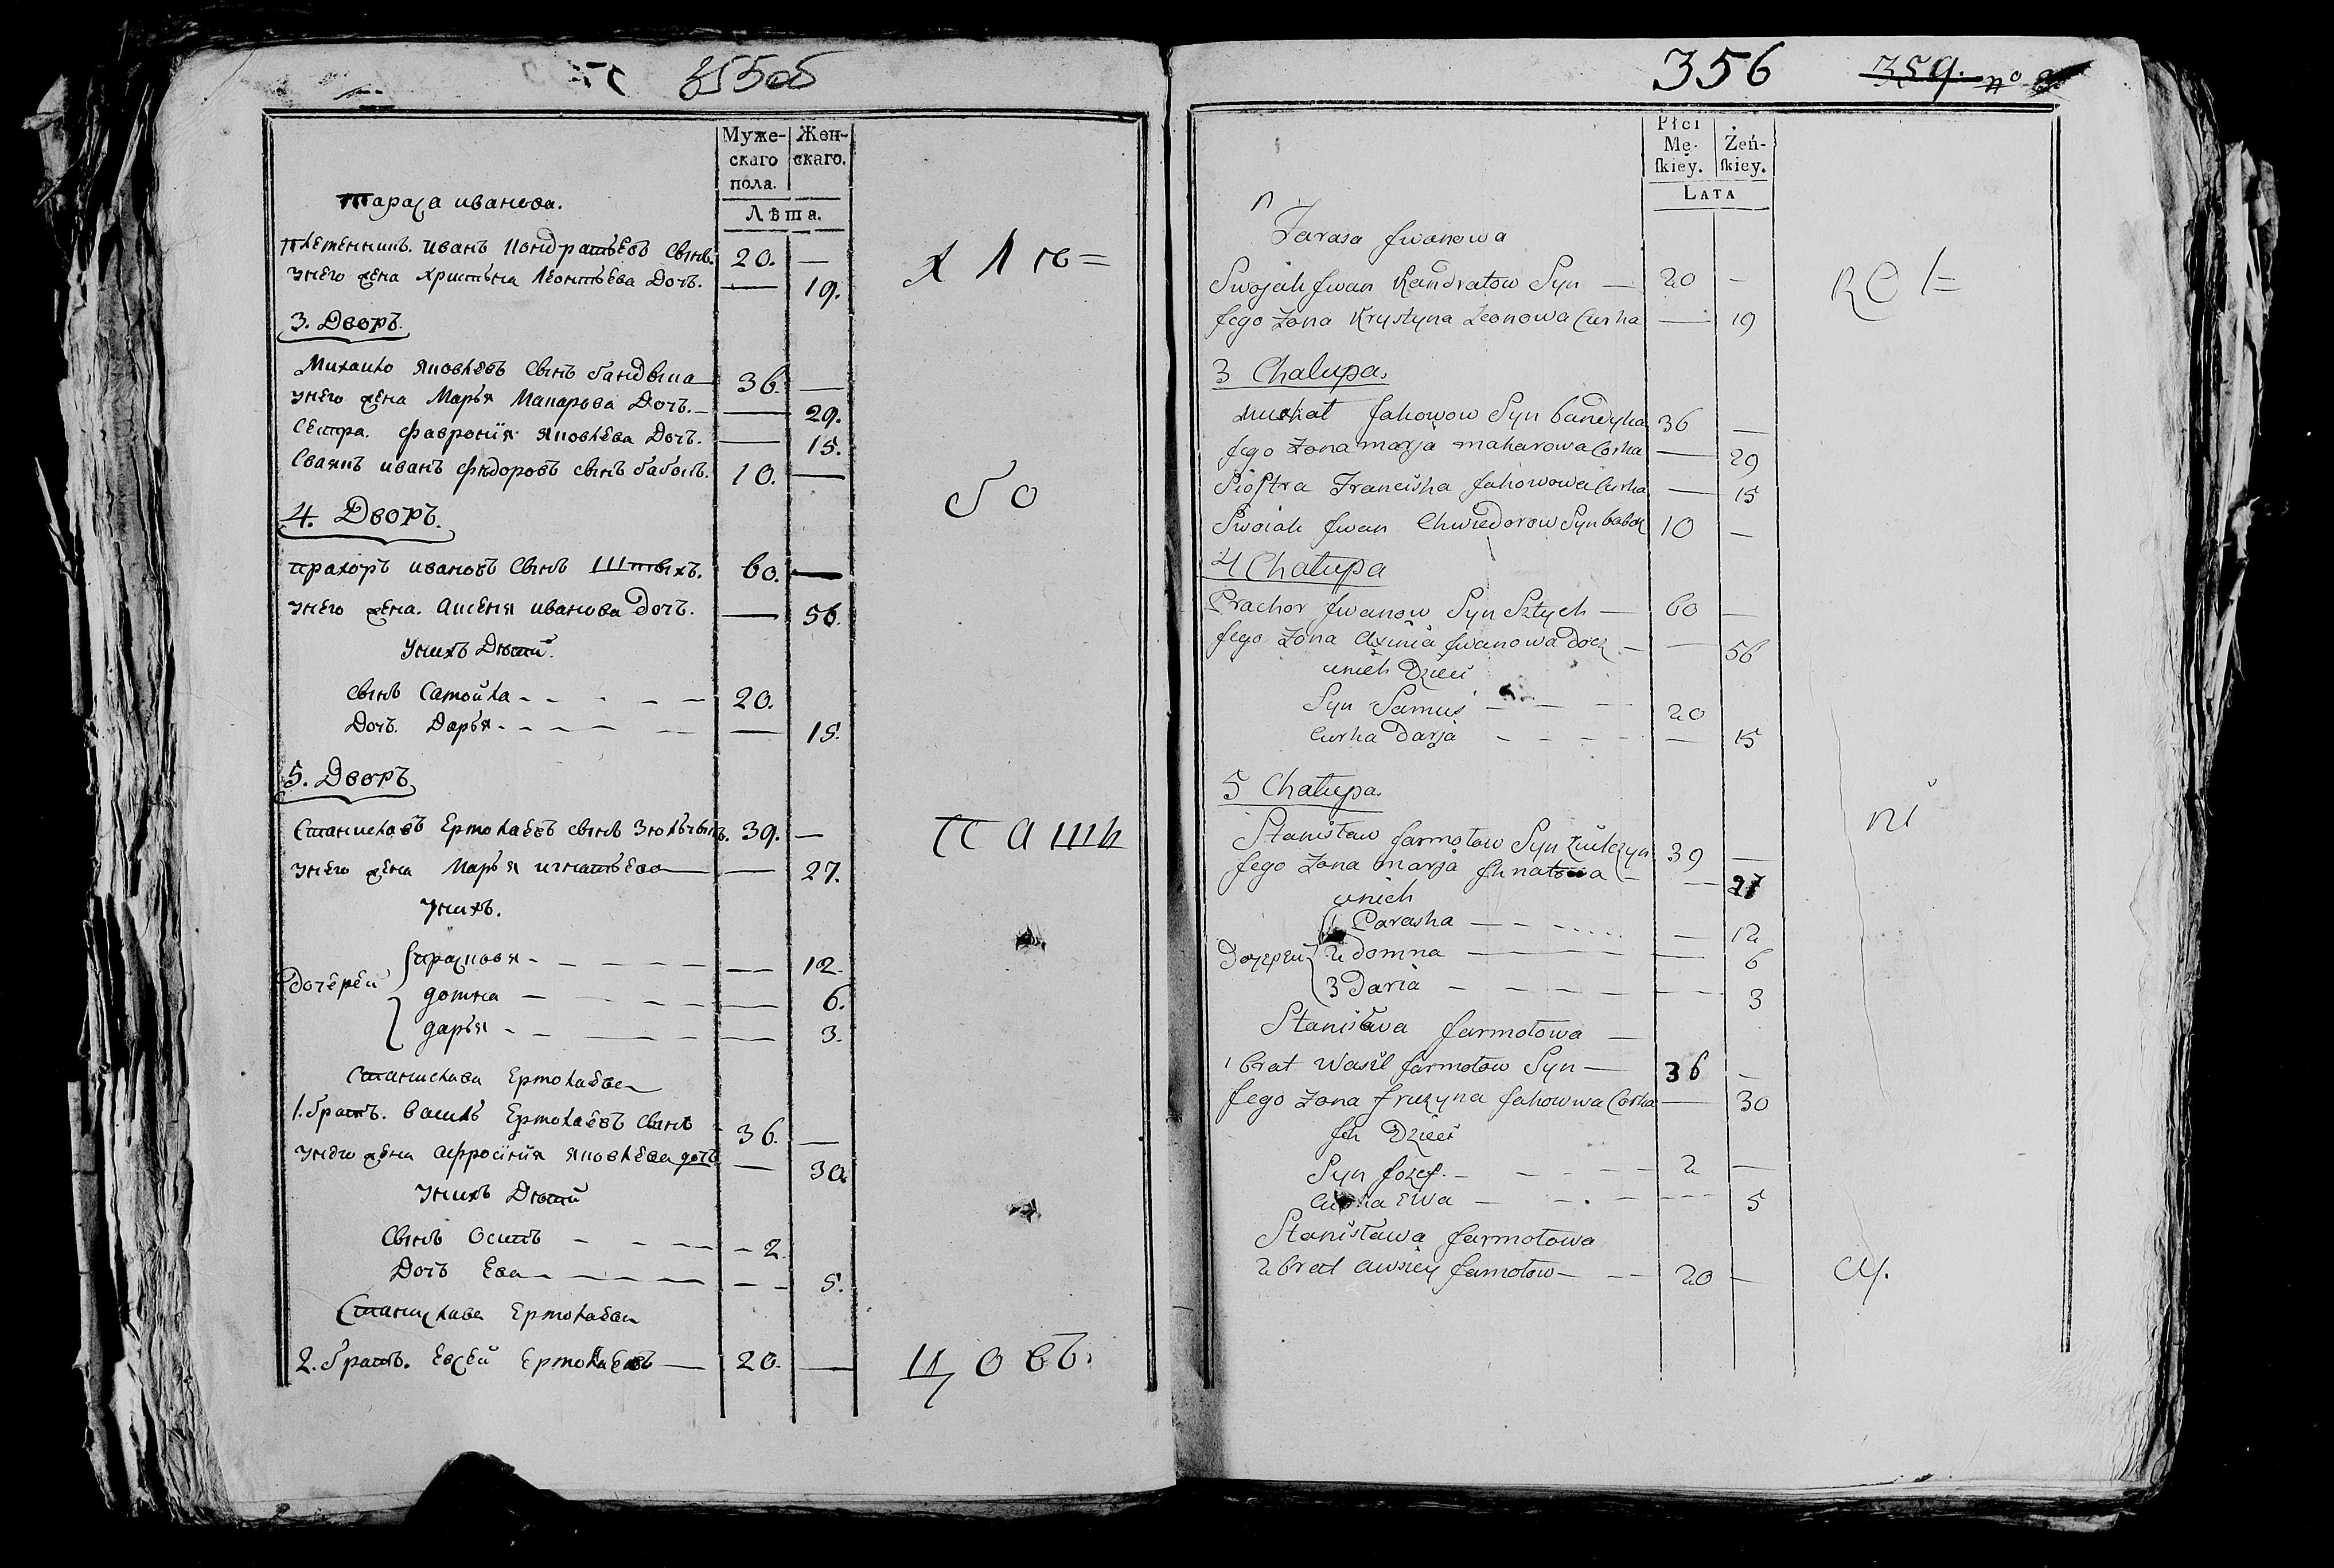 355об
Муже-
скаго
пола.
Жен-
скаго.
Лѣта.
Тараса иванова.
племенникъ. иванъ Кондратьевъ сынъ. 20. —
унего жена христина Леонтьева Дочь. — 19.
3. Дворъ.
Михайло яковлевъ сынъ бандыка 36. —
унего жена Марья Макарова Дочь. — 29.
Сестра. фавронія яковлева Дочь. — 15.
Сваякъ иванъ фѣдоровъ сынъ баболъ. 10. —
4. Дворъ.
прахоръ ивановъ сынъ Штыхъ. 60. —
унего жена. аксеня иванова Дочь. — 56.
унихъ Дѣтй.
сынъ Самойла 20.
Дочь. Дарья — 15.
5. Дворъ
Станиславъ Ермолаевъ сынъ Зюльчынъ. 39. —
унего жена Марья игнатьева — 27.
унихъ.
дочерей
прасковя — 12.
домна — 6.
дарья — 3.
Станислава Ермолаева
1. братъ. василь Ермолаевъ сынъ 36. —
унего жена афросиния яковлева дочь — 30.
унихъ Дѣтй
сынъ осипъ — 2.
Дочь Ева — 5.
Станислава Ермолаева
2. братъ. Евсей Ермолаевъ — 20. —
х л ю =
б о
п а ш н
ц о въ.
356 359.
Płci
Mę-
ſkiey.
Żeń-
ſkiey.
LATA
Tarasa Jwanowa
Swojak Jwan Kandratow Syn — 20 —
Jego Zona Krystyna Leonowa Curka — 19
3 Chalupa.
Michal Jakowow Syn bandyka 36 —
Jego Zona marja makarowa Corka — 29
Sioſtra Franciska Jakowowa Curka — 15
Swoiak Jwan Chwiedorow Syn babol 10 —
4 Chalupa
Prachor Jwanow Syn Sztych — 60 —
Jego Zona Axinia Jwanowa docz — 56
unich Dzieci
Syn Samuś 20
Curka Darja — 15
5 Chalupa.
Stanisław Jarmołow Syn Ziulczyn 39 —
Jego Zona marja Jhnatowa — 27
unich
Дочерей
1 Paraska — 12
2 domna — 6
3 Daria — 3
Stanisława Jarmołowa —
1 brat Wasil Jarmołow Syn — 36 —
Jego Zona fruzyna Jakowwa Corka — 30
Jch Dzieci
Syn Jozef. — 2 —
Curka Ewa — 5
Stanisława Jarmołowa
2 brat Awsiey Jamołow — 20 —
ni